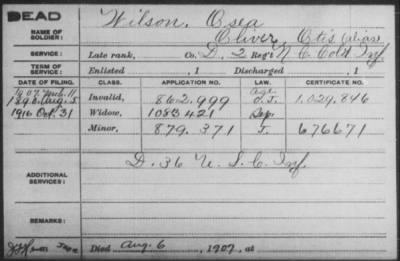 DEAD
NAME OF SOLDIER: Wilson, Osea
Oliver, Otis (alias)
SERVICE: Late rank, Co. D, 2 Reg't N C Col'd Inf.
TERM OF SERVICE: Enlisted , 1 Discharged , 1
DATE OF FILING. CLASS. APPLICATION NO. LAW. CERTIFICATE NO.
1907 Mch. 11 Age
1890 Aug. 5 Invalid, 862.999 1,029,846
1916 Oct. 31 Widow, 1083421
Minor, 879.371 676671
ADDITIONAL SERVICES: D. 36 U.S.C. Inf.
REMARKS:
Died Aug. 6, 1907, at